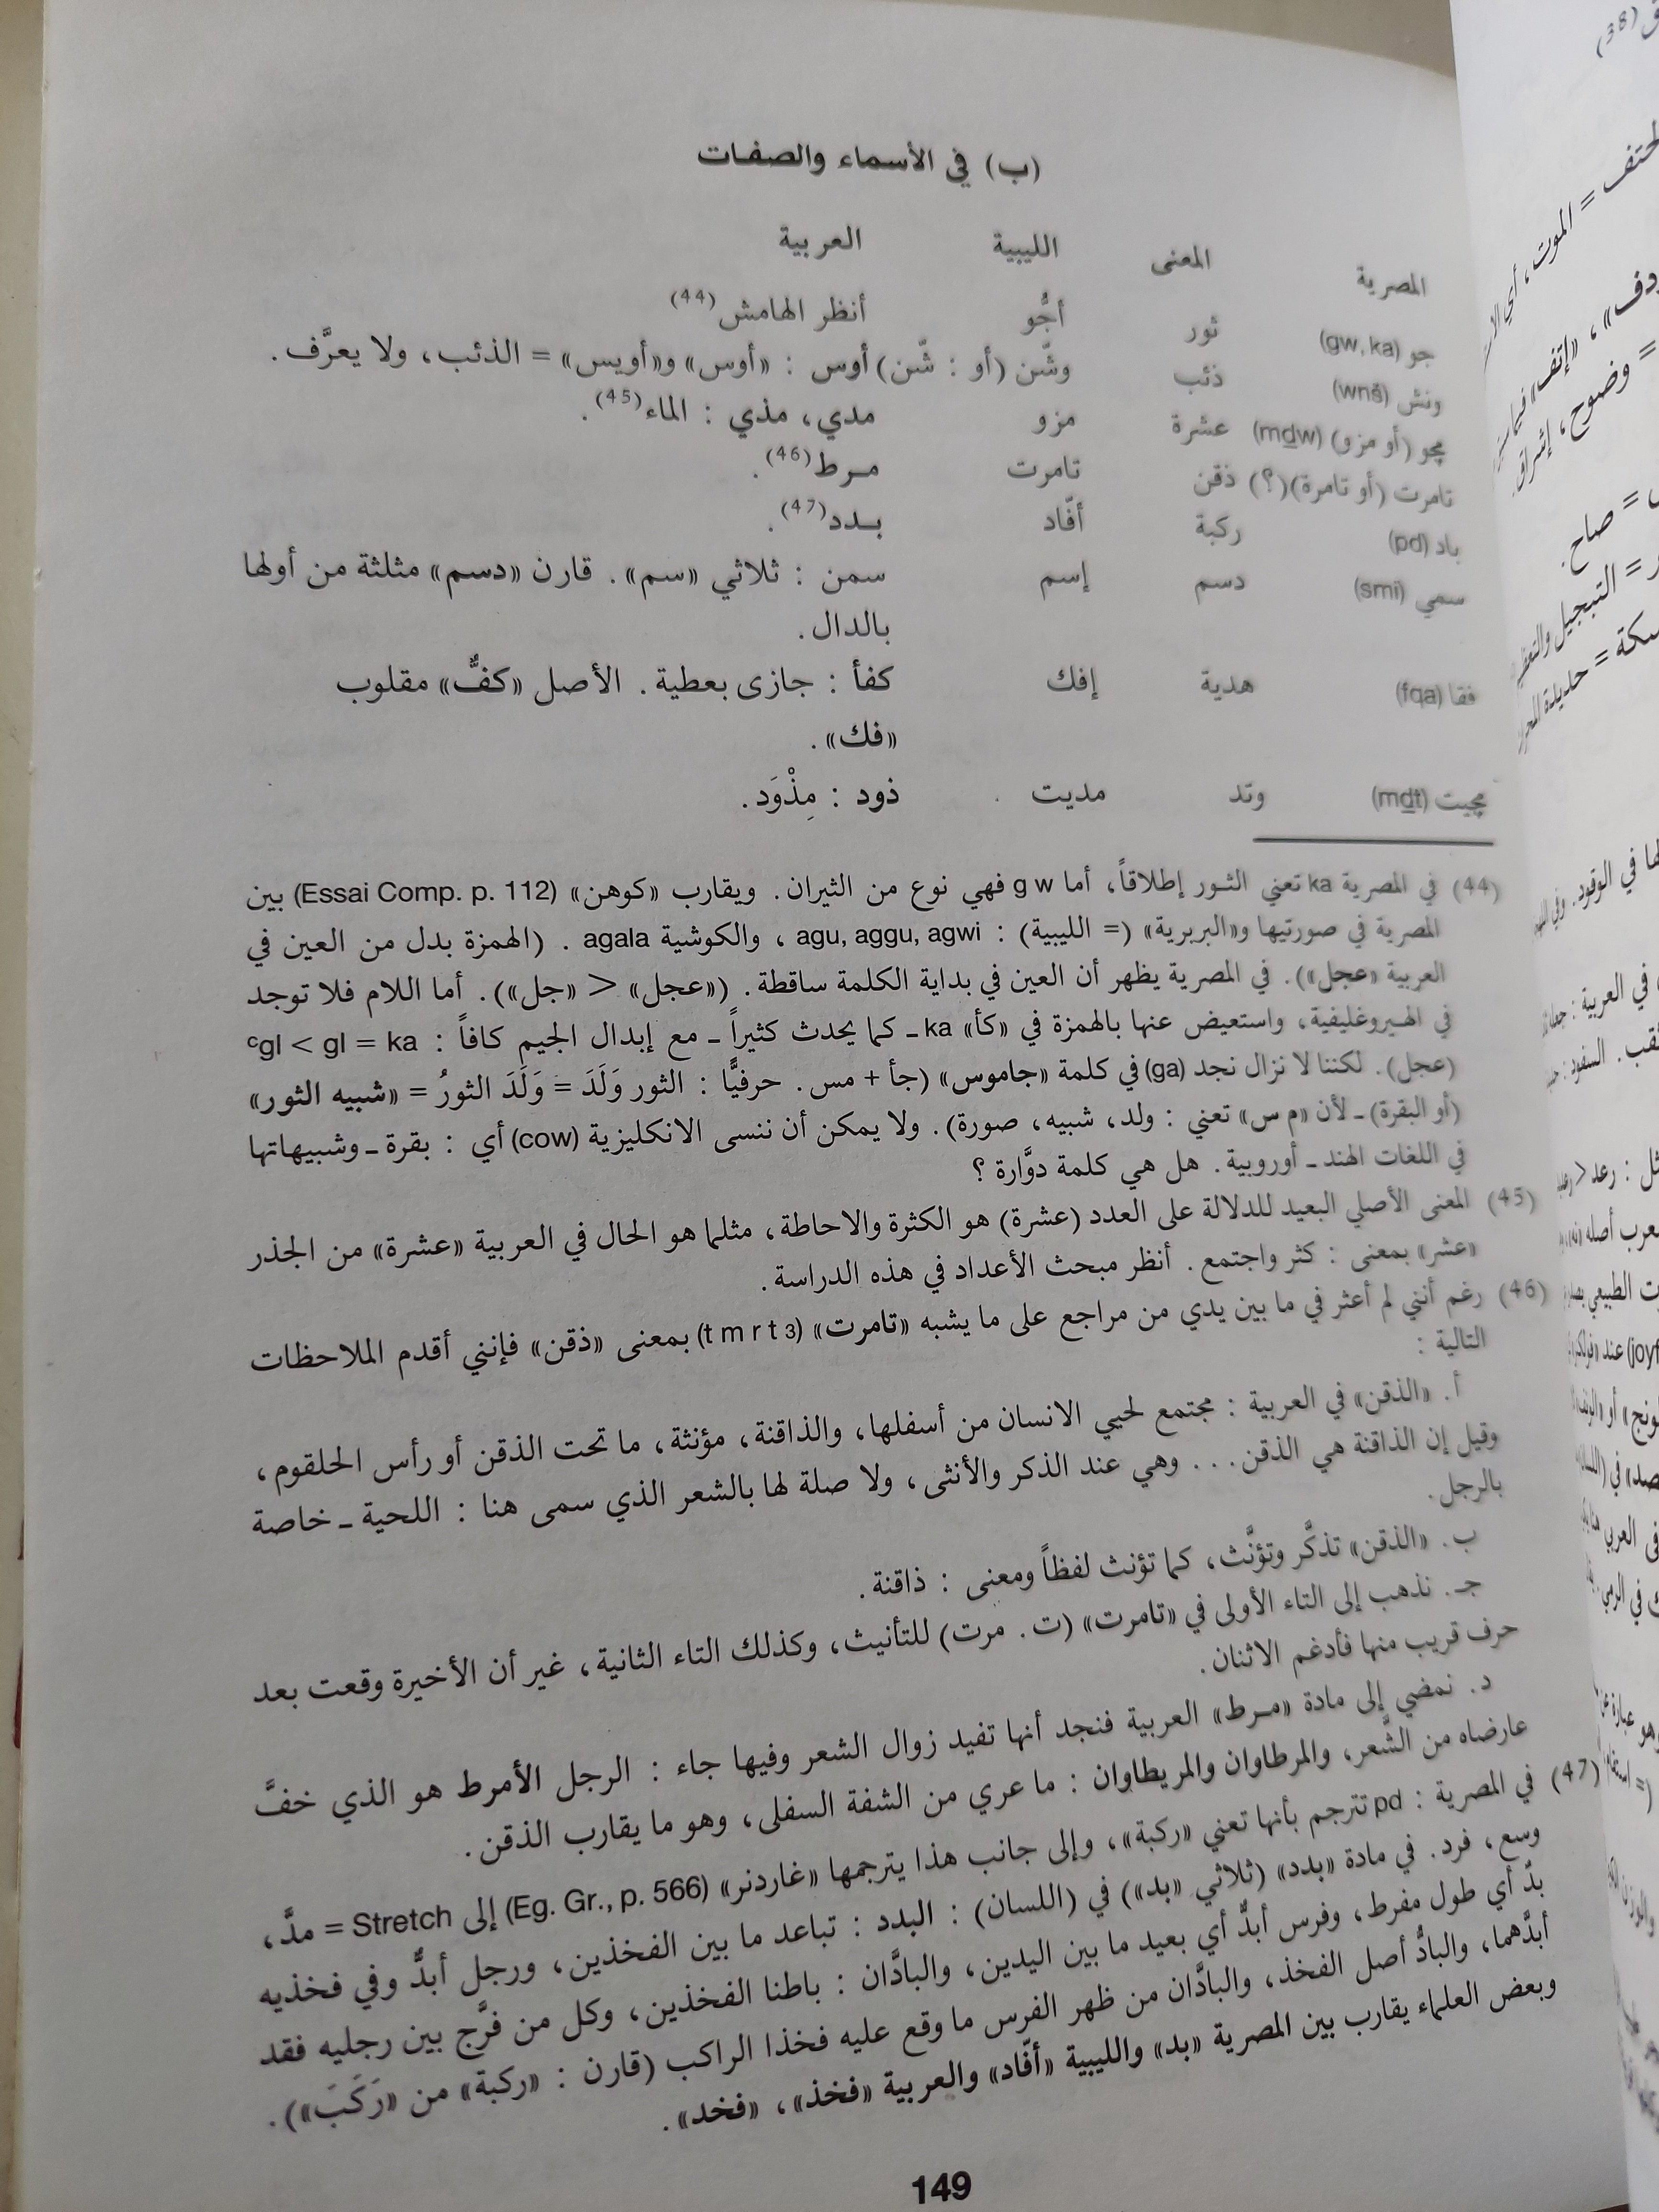 (ب) في الأسماء والصفات
المصرية المعنى الليبية العربية
جو (gw, ka) ثور أجُّو أنظر الهامش (44)
ونش (wnš) ذئب وشّن (أو : شّن) أوس : «أوس» و«أويس» = الذئب، ولا يعرَّف.
مجو (أو مزو) (mḏw) عشرة مزو مدي، مذي : الماء (45).
تامرت (أو تامرة)(؟) ذقن تامرت مـرط (46).
باد (pd) ركبة أفّاد بـدد (47).
سمي (smi) دسم إسم سمن : ثلاثي «سم». قارن «دسم» مثلثة من أولها
بالدال.
فقا (fqa) هدية إفك كفأ : جازى بعطية. الأصل «كفُّ» مقلوب
«فك».
مجيت (mḏt) وتد مديت ذود : مِذْوَد.
(44) في المصرية ka تعني الثور إطلاقاً، أما g w فهي نوع من الثيران. ويقارب «كوهن» (Essai Comp. p. 112) بين
المصرية في صورتيها و«البربرية» (= الليبية) : agu, aggu, agwi ، والكوشية agala . (الهمزة بدل من العين في
العربية «عجل»). في المصرية يظهر أن العين في بداية الكلمة ساقطة. («عجل» < «جل»). أما اللام فلا توجد
في الهيروغليفية، واستعيض عنها بالهمزة في «كأ» ka ـ كما يحدث كثيراً ـ مع إبدال الجيم كافاً : ᶜgl < gl = ka
(عجل). لكننا لا نزال نجد (ga) في كلمة «جاموس» (جأ + مس. حرفيًّا : الثور وَلَدَ = وَلَدَ الثورُ = «شبيه الثور»
(أو البقرة) ـ لأن «م س» تعني : ولد، شبيه، صورة). ولا يمكن أن ننسى الانكليزية (cow) أي : بقرة ـ وشبيهاتها
في اللغات الهند ـ أوروبية. هل هي كلمة دوَّارة ؟
(45) المعنى الأصلي البعيد للدلالة على العدد (عشرة) هو الكثرة والاحاطة، مثلما هو الحال في العربية «عشرة» من الجذر
«عشر» بمعنى : كثر واجتمع. أنظر مبحث الأعداد في هذه الدراسة.
(46) رغم أنني لم أعثر في ما بين يدي من مراجع على ما يشبه «تامرت» (t m r t 3) بمعنى «ذقن» فإنني أقدم الملاحظات
التالية :
أ. «الذقن» في العربية : مجتمع لحيي الانسان من أسفلها، والذاقنة، مؤنثة، ما تحت الذقن أو رأس الحلقوم،
وقيل إن الذاقنة هي الذقن... وهي عند الذكر والأنثى، ولا صلة لها بالشعر الذي سمى هنا : اللحية ـ خاصة
بالرجل.
ب. «الذقن» تذكَّر وتؤنَّث، كما تؤنث لفظاً ومعنى : ذاقنة.
جـ. نذهب إلى التاء الأولى في «تامرت» (ت. مرت) للتأنيث، وكذلك التاء الثانية، غير أن الأخيرة وقعت بعد
حرف قريب منها فأدغم الاثنان.
د. نمضي إلى مادة «مـرط» العربية فنجد أنها تفيد زوال الشعر وفيها جاء : الرجل الأمرط هو الذي خفَّ
عارضاه من الشَّعر، والمرطاوان والمريطاوان : ما عري من الشفة السفلى، وهو ما يقارب الذقن.
(47) في المصرية : pd تترجم بأنها تعني «ركبة»، وإلى جانب هذا يترجمها «غاردنر» (Eg. Gr., p. 566) إلى Stretch = مدَّ،
وسع، فرد. في مادة «بدد» (ثلاثي «بد») في (اللسان) : البدد : تباعد ما بين الفخذين، ورجل أبدُّ وفي فخذيه
بدٌ أي طول مفرط، وفرس أبدُّ أي بعيد ما بين اليدين، والبادَّان : باطنا الفخذين، وكل من فرَّج بين رجليه فقد
أبدَّهما، والبادُّ أصل الفخذ، والبادَّان من ظهر الفرس ما وقع عليه فخذا الراكب (قارن : «ركبة» من «رَكَبَ»).
وبعض العلماء يقارب بين المصرية «بد» والليبية «أفّاد» والعربية «فخذ»، «فخد».
149